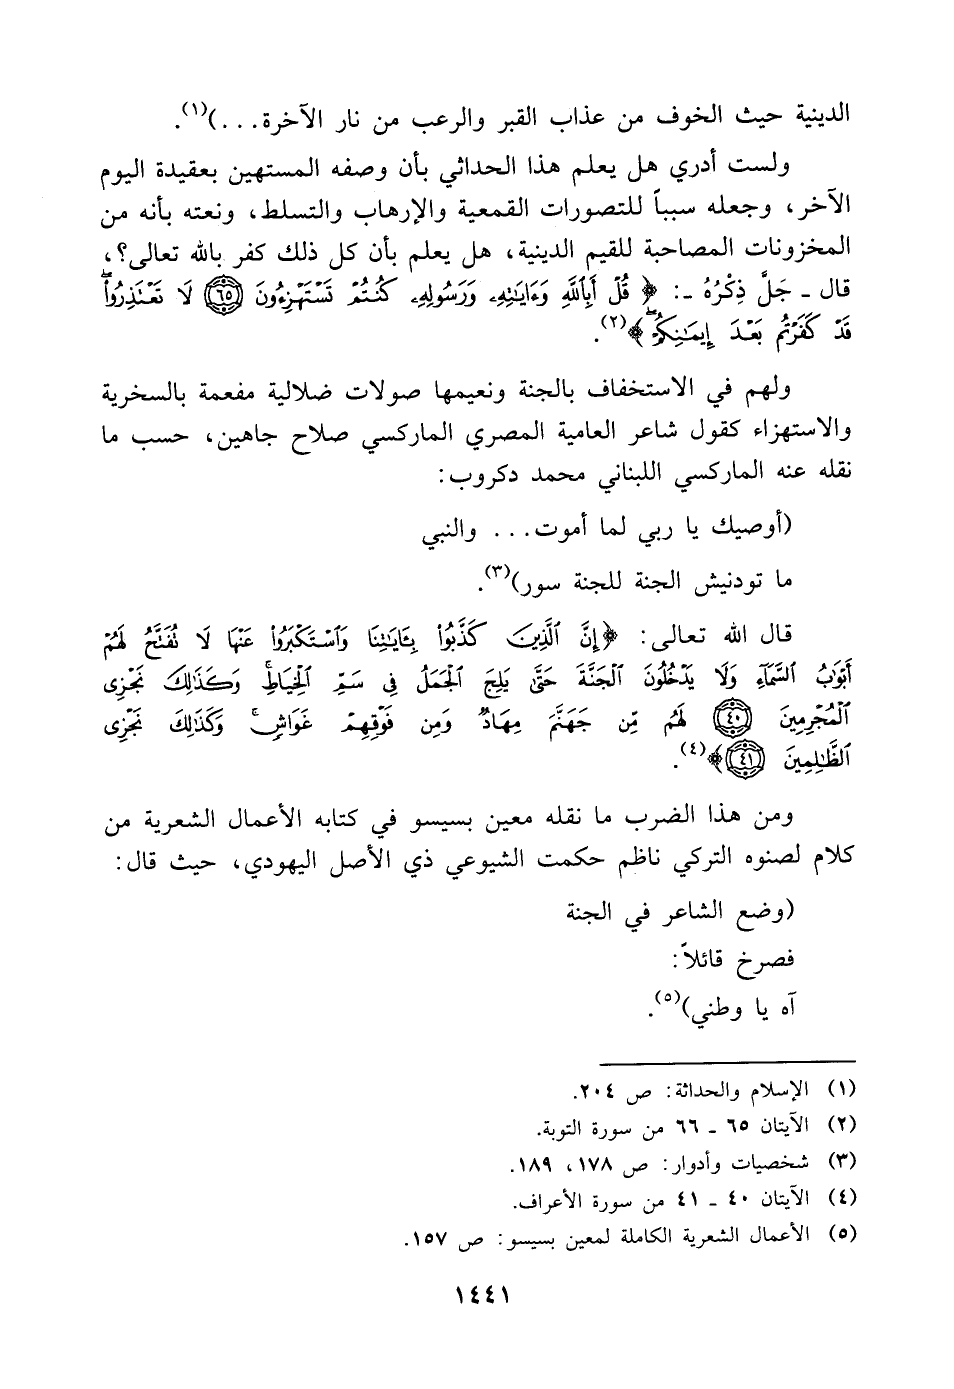 الدينية حيث الخوف من عذاب القبر والرعب من نار الآخرة...)(١).
ولست أدري هل يعلم هذا الحداثي بأن وصفه المستهين بعقيدة اليوم
الآخر، وجعله سبباً للتصورات القمعية والإرهاب والتسلط، ونعته بأنه من
المخزونات المصاحبة للقيم الدينية، هل يعلم بأن كل ذلك كفر بالله تعالى؟،
قال ـ جَلَّ ذِكْرُهُ ـ: ﴿ قُلْ أَبِٱللَّهِ وَءَايَٰتِهِۦ وَرَسُولِهِۦ كُنتُمْ تَسْتَهْزِءُونَ ٦٥ لَا تَعْتَذِرُواْۖ
قَدْ كَفَرْتُم بَعْدَ إِيمَٰنِكُمْۚ﴾(٢).
ولهم في الاستخفاف بالجنة ونعيمها صولات ضلالية مفعمة بالسخرية
والاستهزاء كقول شاعر العامية المصري الماركسي صلاح جاهين، حسب ما
نقله عنه الماركسي اللبناني محمد دكروب:
(أوصيك يا ربي لما أموت... والنبي
ما تودنيش الجنة للجنة سور)(٣).
قال الله تعالى: ﴿إِنَّ ٱلَّذِينَ كَذَّبُواْ بِـَٔايَٰتِنَا وَٱسْتَكْبَرُواْ عَنْهَا لَا تُفَتَّحُ لَهُمْ
أَبْوَٰبُ ٱلسَّمَآءِ وَلَا يَدْخُلُونَ ٱلْجَنَّةَ حَتَّىٰ يَلِجَ ٱلْجَمَلُ فِى سَمِّ ٱلْخِيَاطِۚ وَكَذَٰلِكَ نَجْزِى
ٱلْمُجْرِمِينَ ٤٠ لَهُم مِّن جَهَنَّمَ مِهَادٌ وَمِن فَوْقِهِمْ غَوَاشٍۚ وَكَذَٰلِكَ نَجْزِى
ٱلظَّٰلِمِينَ ٤١﴾(٤).
ومن هذا الضرب ما نقله معين بسيسو في كتابه الأعمال الشعرية من
كلام لصنوه التركي ناظم حكمت الشيوعي ذي الأصل اليهودي، حيث قال:
(وضع الشاعر في الجنة
فصرخ قائلاً:
آه يا وطني)(٥).
(١) الإسلام والحداثة: ص ٢٠٤.
(٢) الآيتان ٦٥ ـ ٦٦ من سورة التوبة.
(٣) شخصيات وأدوار: ص ١٧٨، ١٨٩.
(٤) الآيتان ٤٠ ـ ٤١ من سورة الأعراف.
(٥) الأعمال الشعرية الكاملة لمعين بسيسو: ص ١٥٧.
١٤٤١